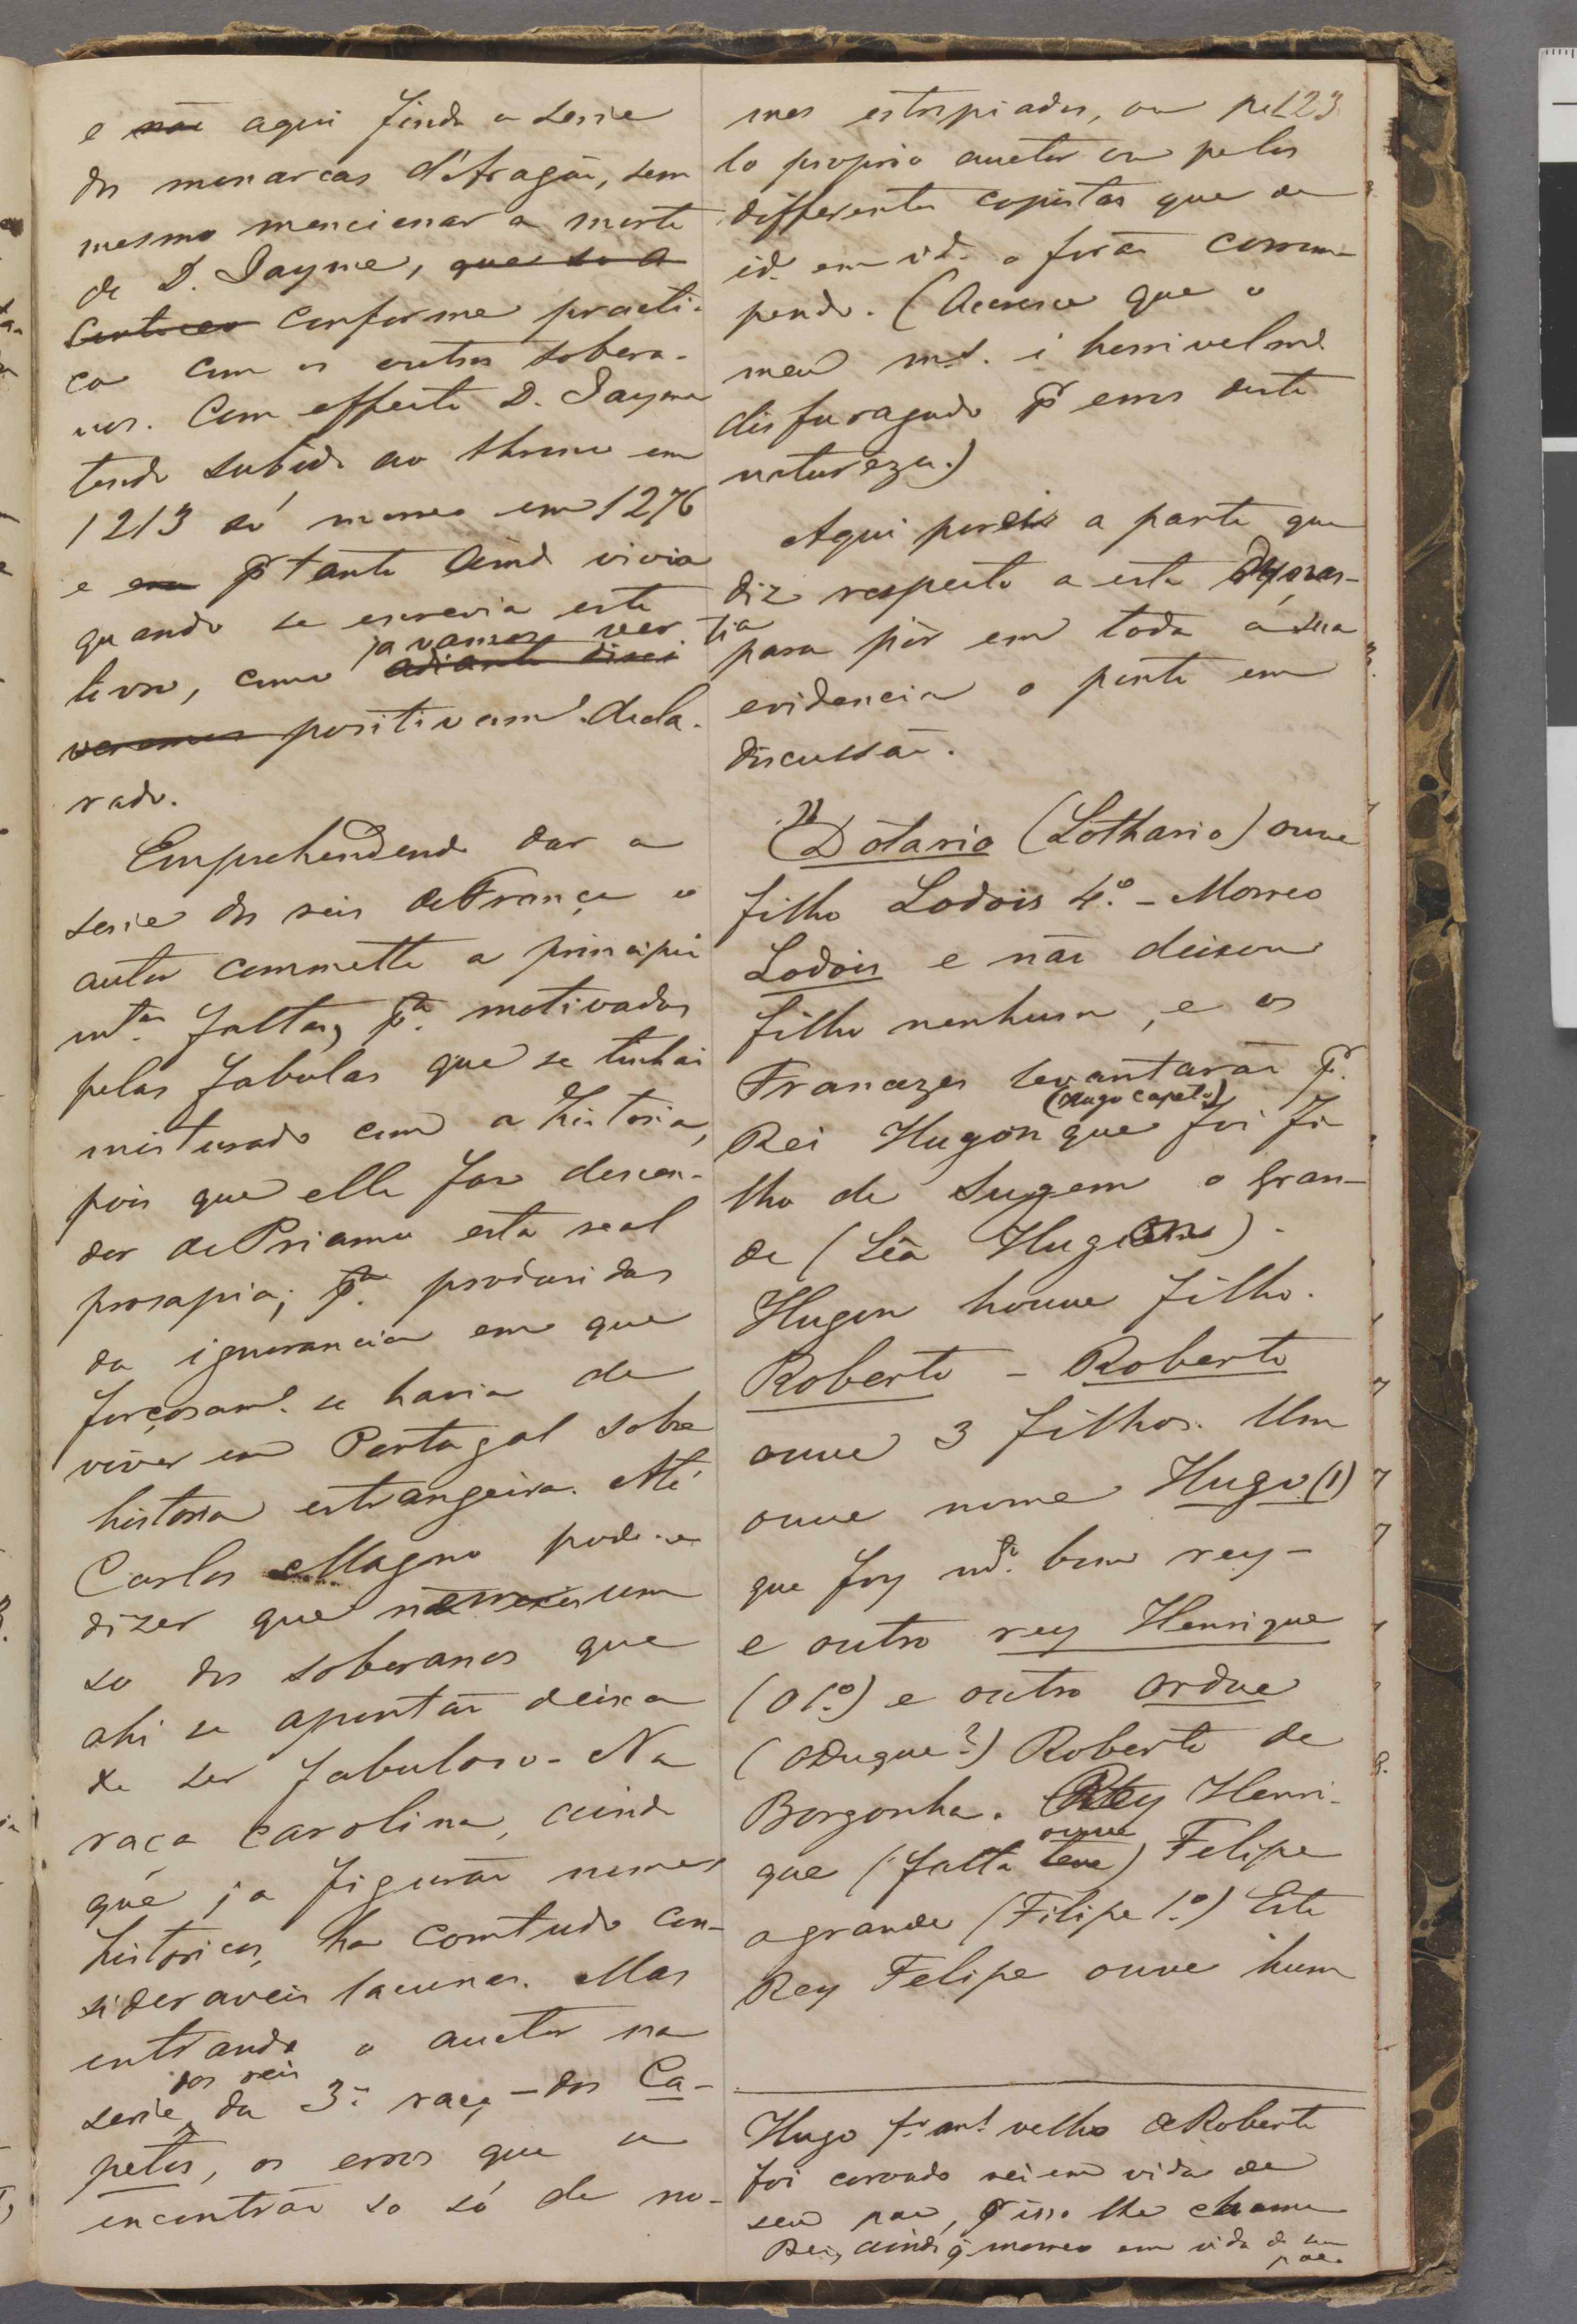 e não aqui finda a serie
dos monarcas d'Aragão, sem
mesmo mencionar a morte
de D. Jayme, que so a
conforme practi-
ca com os outros sobera-
nos. Com effeito D. Jayme
tendo subido ao throno em
1213 só morreo em 1276
e era ptanto aind vivia
quando se escrevia este
ja vamos ver
livro, como adiante disci
veremos positivam.e decla-
rado.
Emprehendendo dar a
serie dos reis de França o
autor commette a principio
m.tas faltas, p.a motivadas
pelas fabulas que se tinhão
misturado com a historia,
pois que elle faz descen-
der de Priamo esta real
prosapia; p.a produsidas
da ignorancia em que
forçosam.e se havia de
viver em Portugal sobre
historia estrangeira. Até
Carlos Magno pode-se
dizer que nem um
so dos soberanos que
ahi se apontão deixa
de ser fabuloso - Na
raça carolina, ainda
que ja figurão nomes
historicos, ha comtudo con-
sideraveis lacunas. Mas
entrando o auctor na
dos reis
serie da 3.a raça - dos Ca-
petos, os erros que se
encontrão so só de no-
123
mes estropiados, ou pe
lo proprio auctor ou pelos
differentes copistas que de
id.e em id.e o forão corrom-
pendo. (Accresce que o
meu m.s. é horrivelm.e
disfuragado pr erros desta
natureza.)
Aqui poreis a parte que
diz respeito a esta Dynas-
tia
para pôr em toda a sua
evidencia o ponto em
discussão.
"Dotario (Lothario) ouve
filho Lodois 4.º - Morreo
Lodois e não deixou
filho nenhum, e os
Francezes levantarão p.r
(Hugo Capeto)
Rei Hugon que foi fi
lho de Sugem o Gran-
de (Lêa Hugon).
Hugon houve filho.
Roberto - Roberto
ouve 3 filhos. Um
ouve nome Hugo (1)
que foy m.to bom rey -
e outro rey Henrique
(o 1.º) e outro ordue
(o Duque?) Roberto de
Borgonha. Rey Henri-
ouve
que (falta teve) Felipe
o grande (Filipe 1.º) Este
Rey Felipe ouve hum
Hugo f.o m.s velho de Roberto
foi coroado rei em vida de
seu pae, pr isso lhe chama
Rei, ainda q morreo em vida de seu
pae.